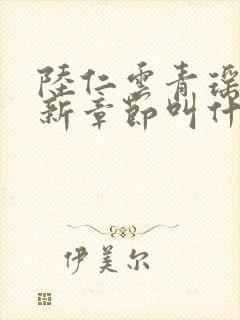 陸仁雲青瑶
新章節叫什
伊美尔